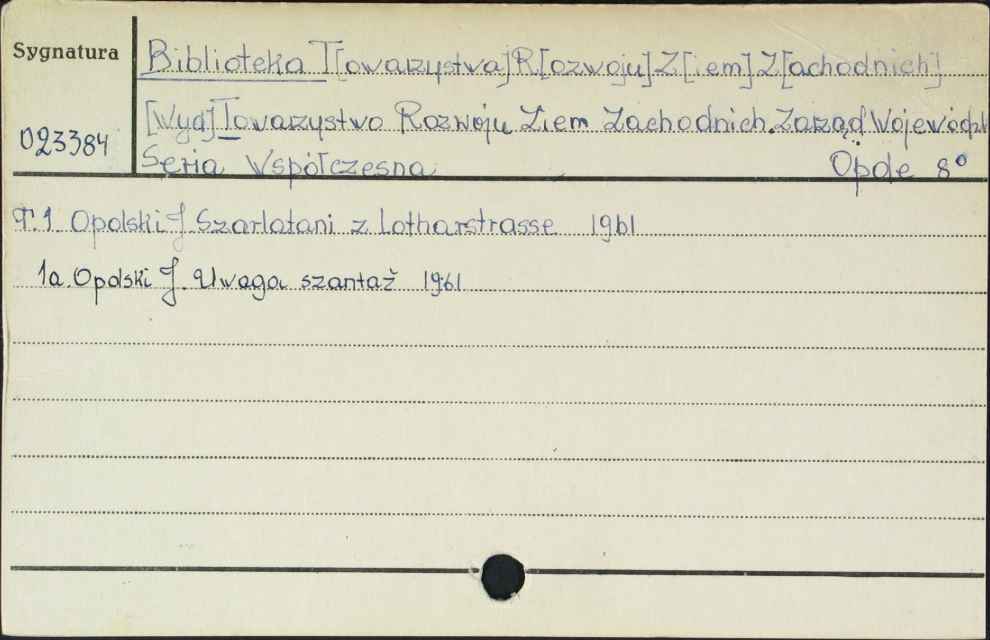 Sygnatura
Biblioteka T[owarzystwa] R[ozwoju] Z[iem] Z[achodnich]
[Wyd] Towarzystwo Rozwoju Ziem Zachodnich. Zarząd Wojewódzk
023384
Seria Współczesna
Opole 8°
T.1. Opolski J. Szarlatani z Lotharstrasse 1961
1a. Opolski J. Uwaga szantaż 1961